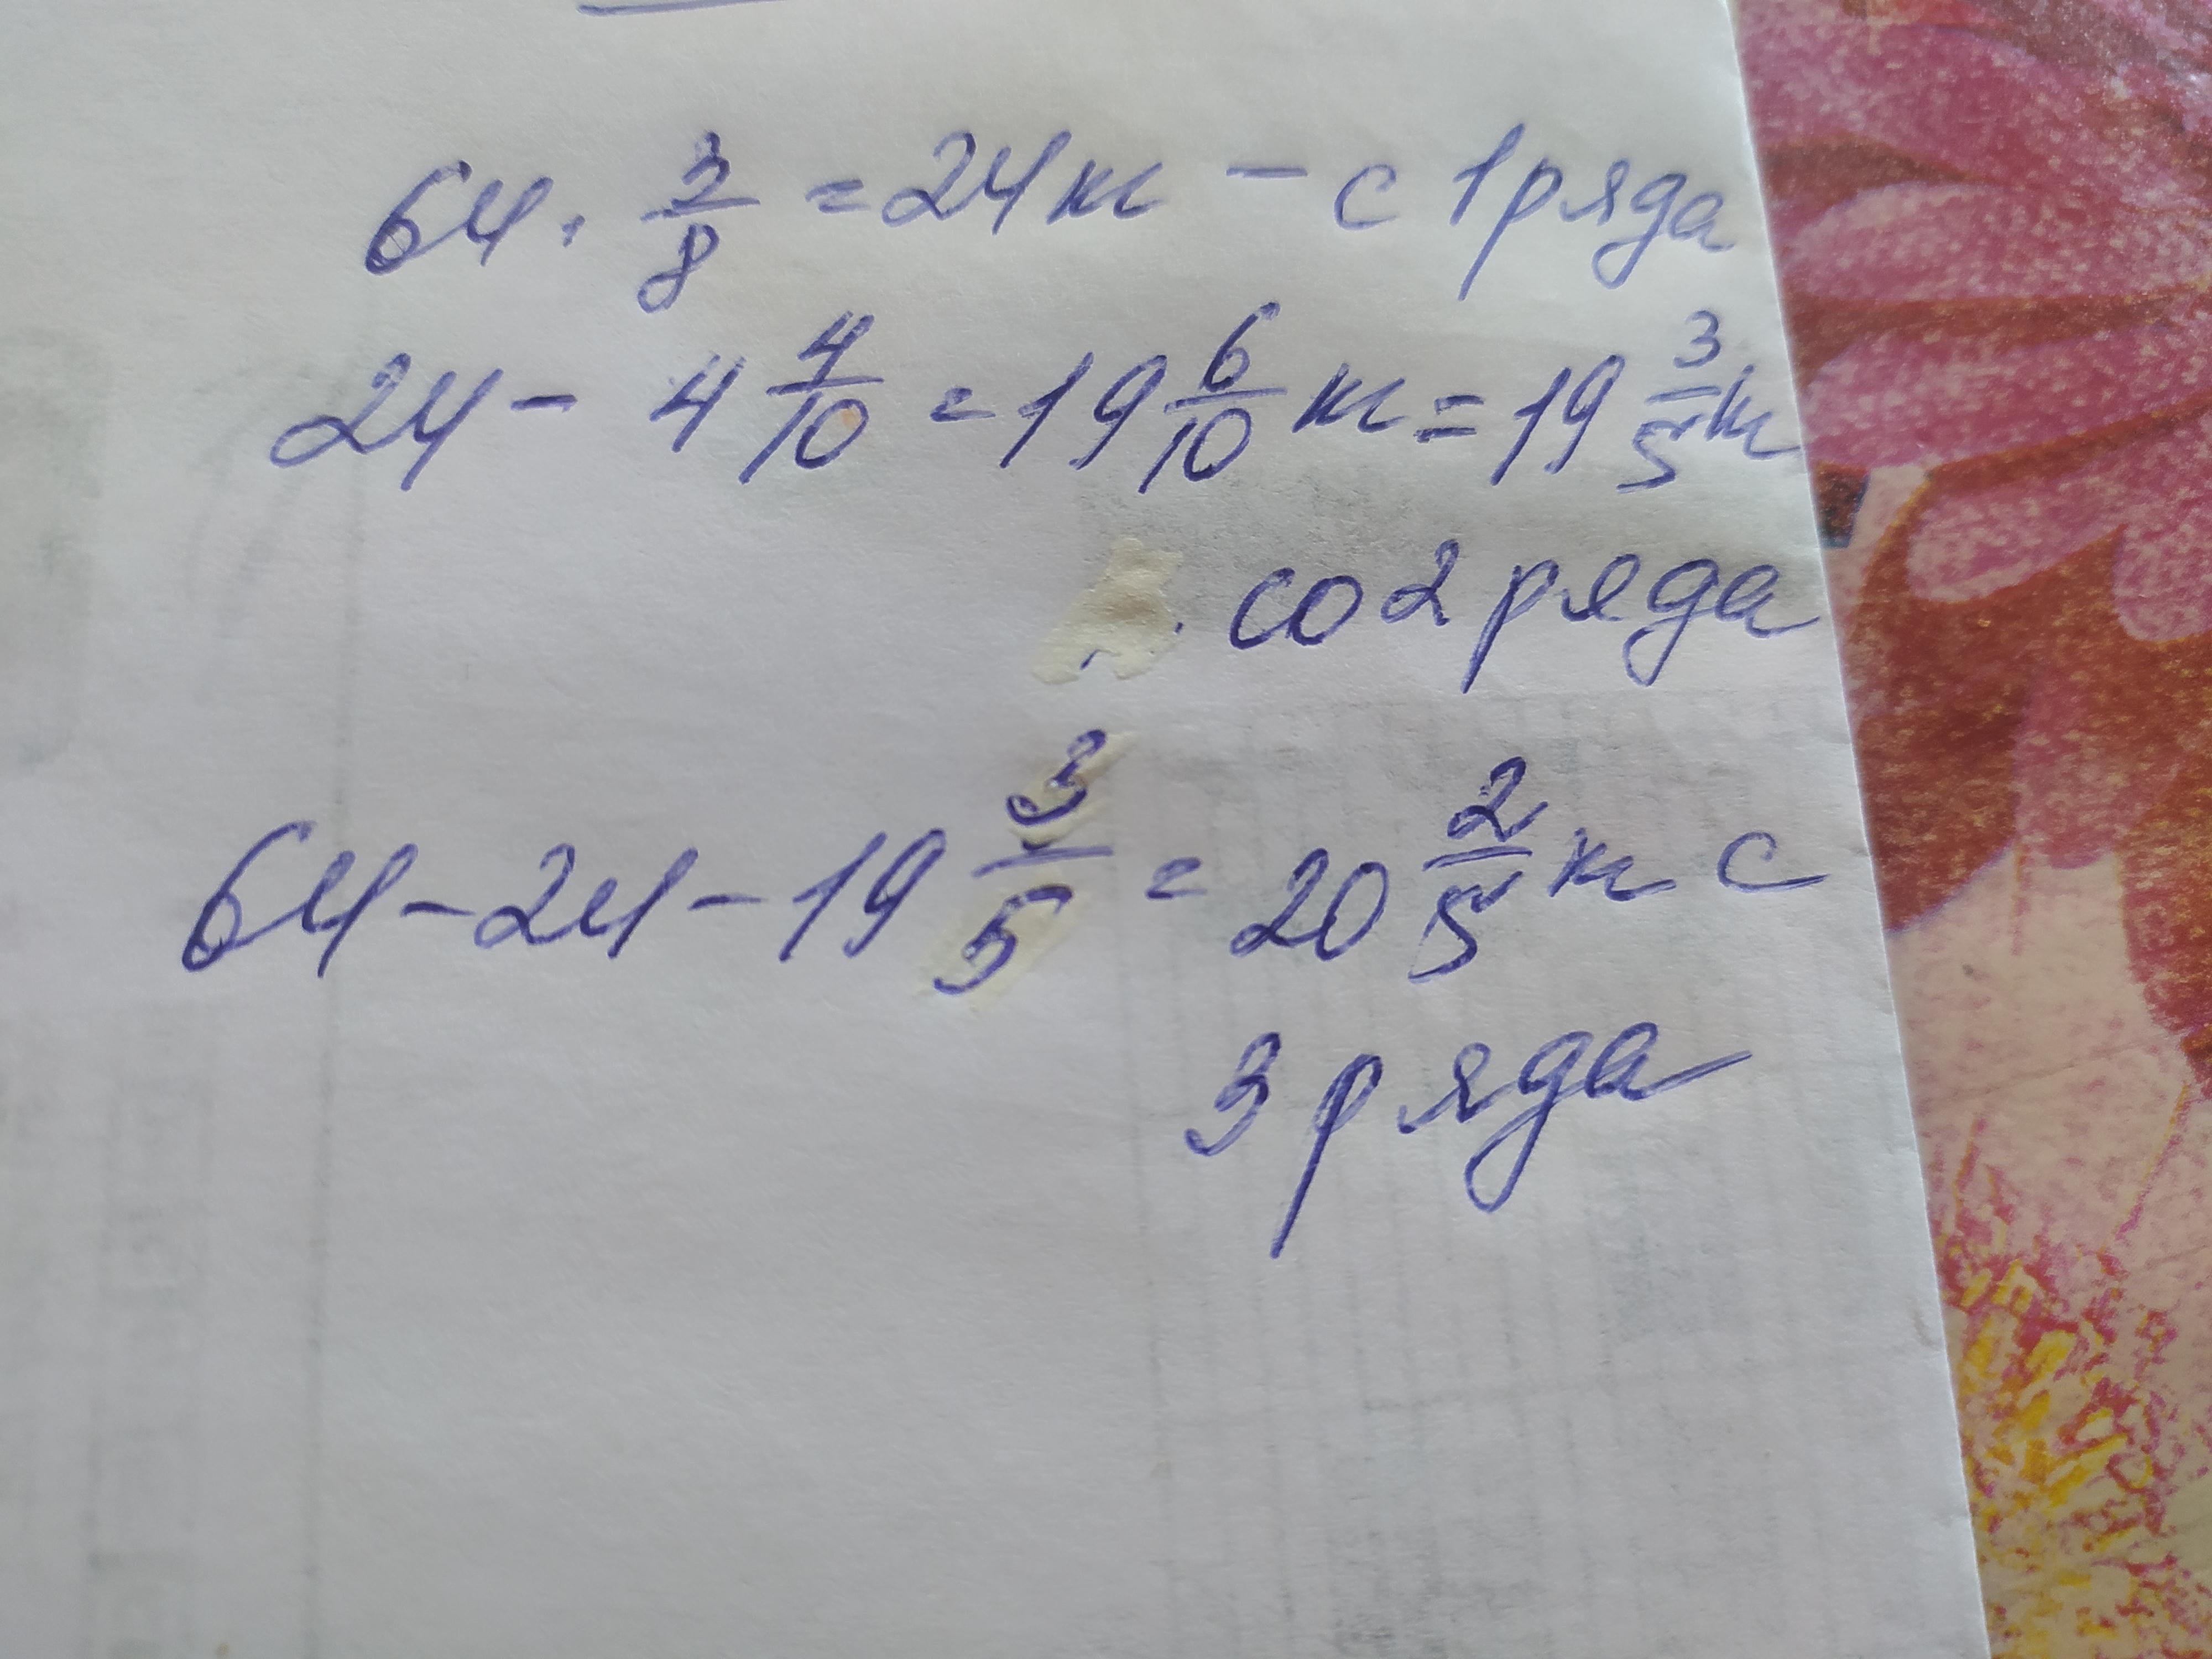 64 · 3/8 = 24 кг – с 1 ряда
24 – 4 4/10 = 19 6/10 кг = 19 3/5 кг
со 2 ряда
64 – 24 – 19 3/5 = 20 2/5 кг с
3 ряда